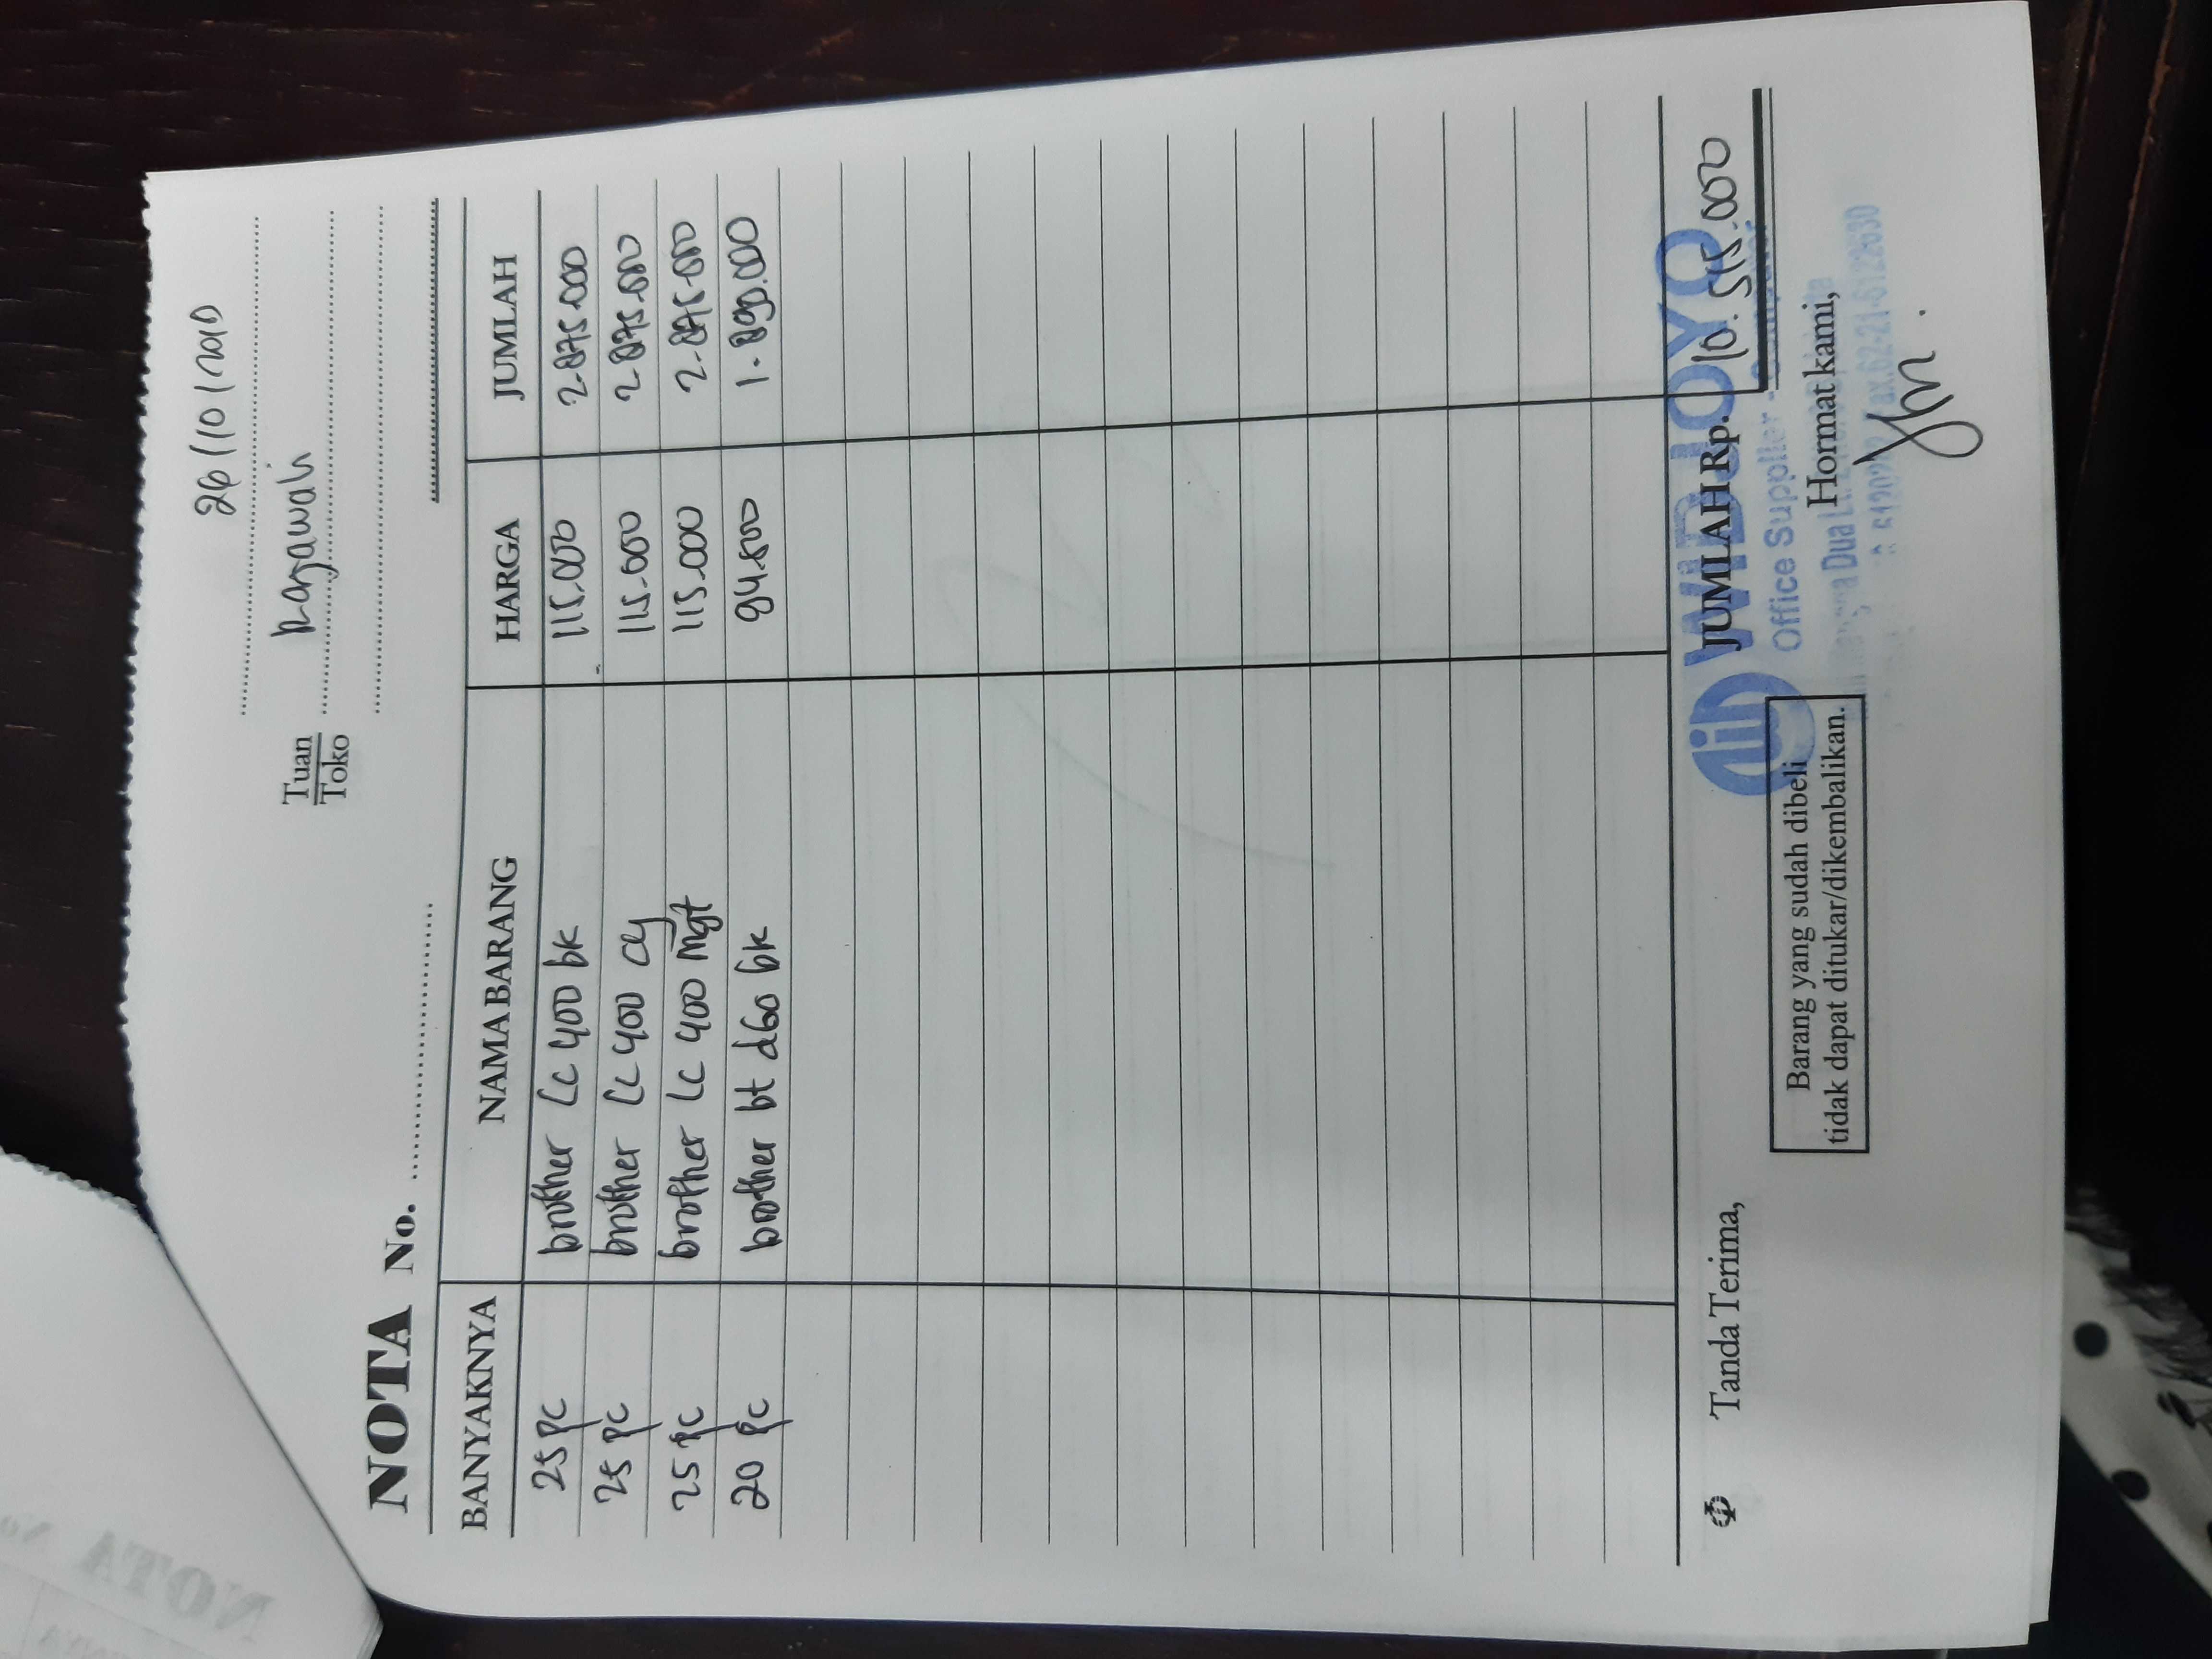 26/10/2010
Tuan
Toko
NOTA No.
BANYAKNYA NAMA BARANG HARGA JUMLAH
25 pc brother Lc 400 bk 115.000 2.875.000
25 pc brother Lc 400 cy 115.000 2.875.000
25 pc brother Lc 400 Mgt 115.000 2.875.000
20 pc brother bt d60 bk 94.500 1.890.000
JUMLAH Rp. 10.515.000
WIDJOYO
Office Supplier - Computer
Tanda Terima,
Barang yang sudah dibeli
tidak dapat ditukar/dikembalikan.
Hormat kami,
Dua
ax.62-21-6122630
NOTA No